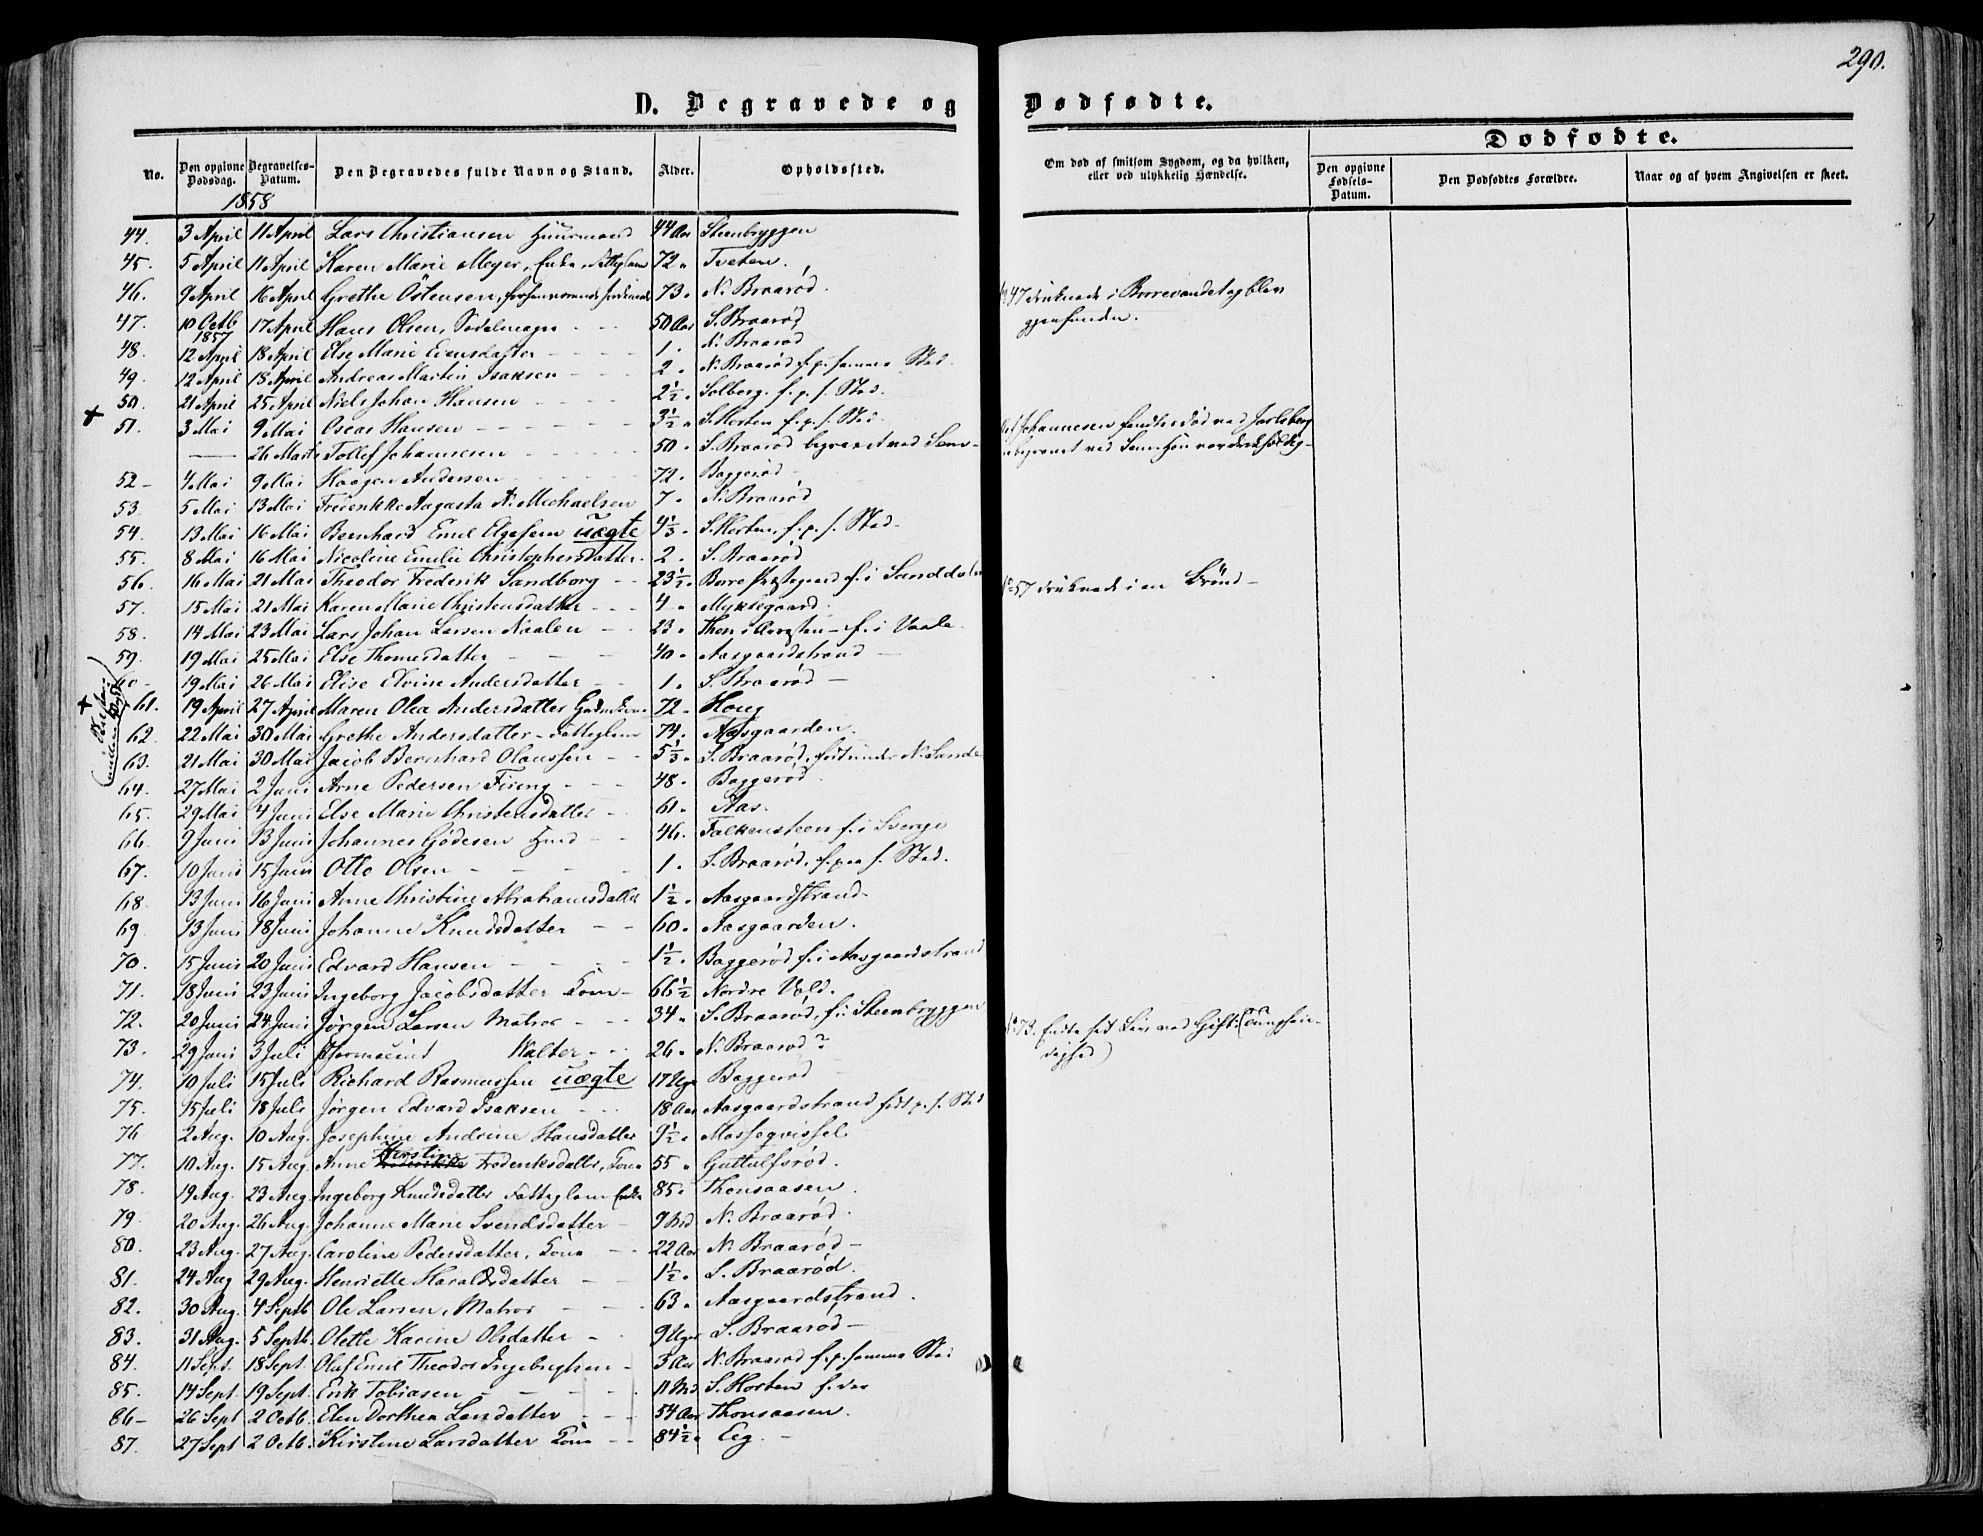 290.
D. Begravede og Dødfødte.
No. Den opgivne Dødsdag. Begravelses-Datum. Den Begravedes fulde Navn og Stand. Alder. Opholdssted. Om død af smitsom Sygdom, og da hvilken, eller ved ulykkelig Hændelse. Dødfødte. Den opgivne Fødsels-Datum. Den Dødfødtes Forældre. Naar og af hvem Angivelsen er skeet.
1858
44. 3 April 11 April Lars Christiansen Huusmand 44 Aar Steenbryggen
45. 5 April 11 April Karen Marie Meyer, Enke, Fattiglem 72 " Tveten.
46. 9 April 16 April Grethe Östensen, 73. N. Braarød.
47. 10 Octb 1857 17 April Hans Olsen, Sadelmager - - - 50 Aar S. Braarød
No 47 druknede i Borrevandet og blev
gjenfunden.
48. 12 April 18 April Else Marie Evensdatter - - - - 1. N. Braarød
49. 12 April 18 April Andreas Martin Isaksen - - - - 2 " N. Braarød f. p. samme Sted.
50. 21 April 25 April Niels Johan Hansen - - - - 2½ " Solberg. f. p. s. Sted.
+ 51. 3 Mai 9 Mai Oscar Hansen - - - - - 3½ " S. Horten f. p. s. Sted.
— 26 Marts Tollef Johannesen - - - - - 50 " S. Braarød begravet ved Sem-
Johannesen fandtes død ved Jarlsberg
begravet ved Sem.
52 - 4 Mai 9 Mai Haagen Andersen - - - - 72. Baggerød -
53. 5 Mai 13 Mai Fredrikke Augusta N. Michaelsen 7 " N. Braarød
54. 13 Mai 16 Mai Bernhard Emil Elgesem uægte 4⅓ " S. Horten, f. p. s. Sted-
55. 8 Mai 16 Mai Nicoline Emilie Christophersdatter. 2 " S. Braarød
56. 16 Mai 21 Mai Theodor Frederik Sandborg - - 23½ " Borre Præstegaard f. i Sanddalen
57. 15 Mai 21 Mai Karen Marie Christensdatter - - - 4 " Myklegaard.
No 57 druknede i en Brönd -
58. 14 Mai 23 Mai Lars Johan Larsen Naalen - - 23 " Thon i Adresten - f. i Vaale.
59. 19 Mai 25 Mai Else Thomesdatter - - - 40 " Aasgaardstrand -
19 Mai 26 Mai Elise Elvine Andersdatter - - 1. S. Braarød -
+ 61. 19 April 27 April Maren Olea Andersdatter 72 " Houg
62. 22 Mai 30 Mai Grethe Andersdatter - Fattiglem 74. Aasgaarden.
63. 21 Mai 30 Mai Jacob Bernhard Olaussen - - 5⅓ " S. Braarød, født under N. Sande
64. 27 Mai 2 Juni Arne Pedersen Firing - - - 48 " Baggerød
65. 29 Mai 4 Juni Else Marie Christensdatter - 61 " Aas.
66. 9 Juni 13 Juni Johannes Gödesen Hmd - - 46. Falkensteen f. i Sverge
67. 10 Juni 15 Juni Otto Olsen - - - - 1. S. Braarød, f. paa s. Sted.
68. 13 Juni 16 Juni Anne Christine Abrahamsdatter 1½ " Aasgaardstrand-
69. 13 Juni 18 Juni Johanne Knudsdatter - - 60 " Aasgaarden.
70. 15 Juni 20 Juni Edvard Hansen - - - - 1½ " Baggerød f. i Aasgaardstrand
71. 18 Juni 23 Juni Ingeborg Jacobsdatter Kone - 66½ Nordre Vold.
72. 20 Juni 24 Juni Jørgen Larsen Matros - - - 34 " S. Braarød, f. i Steenbryggen
73. 29 Juni 3 Juli Walter - - - 26 " N. Braarød ?
No 73. Endte sit Liv ved Gift. (Tungsindighed)
74. 10 Juli 15 Juli Richard Rasmussen uægte 17 Uger Baggerød -
75. 15 Juli 18 Juli Jørgen Edvard Isaksen - - - 18 Aar Aasgaardstrand født p. s. Sted
76 2 Aug. 10 Aug. Josephine Andrine Hansdatter 9½ " Masseqvissel
77. 10 Aug. 15 Aug. Anne Kirstine Frederiksdatter, Kone 55 " Guttulfsrød.
78. 19 Aug. 23 Aug. Ingeborg Knudsdatter Fattiglem Enke 85 " Thonsaasen.
79. 20 Aug. 26 Aug. Johanne Marie Svendsdatter - 9 Md N. Braarød.
80. 23 Aug. 27 Aug. Caroline Pedersdatter, Kone - - 22 Aar N. Braarød -
81. 24 Aug 29 Aug. Henriette Haraldsdatter - - 1½ " S. Braarød.
82. 30 Aug. 4 Septb Ole Larsen, Matros - - - 63 " Aasgaardstrand.
83. 31 Aug. 5 Septb. Olette Karine Olsdatter - - 9 Uger S. Braarød -
84. 11 Sept. 18 Sept. Oluf Emil Theodor Ingebrigtsen - 3 Aar N. Braarød f. p. samme Sted
85. 14 Sept. 19 Sept. Erik Tobiasen - - - - - 11 Md. S. Horten f. der
86 - 26 Sept 2 Octb. Elen Dorthea Larsdatter - - - 54 Aar Thonsaasen.
87. 27 Sept 2 Octb. Kirstine Larsdatter Kone - - 84½ " Eeg. -